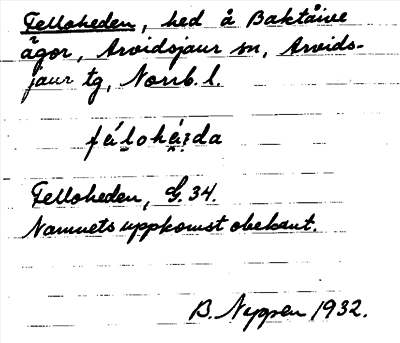 Felloheden, hed å Baktåive
ägor, Arvidsjaur sn, Arvids-
jaur tg, Norrb. l.
Felloheden, G. 34.
Namnets uppkomst obekant.
B. Nygren 1932.